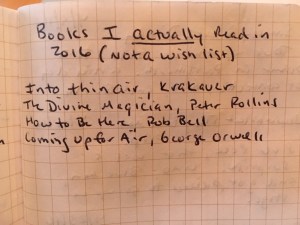 Books I actually Read in
2016 (Not a wish list)
Into thin air, Krakauer
The Divine Magician, Peter Rollins
How to Be Here Rob Bell
Coming up for Air, George Orwell